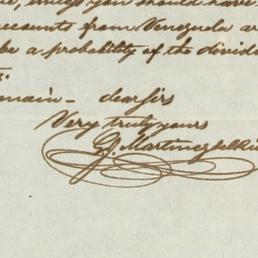 unless you should have
accounts from Venezuela ar
be a probability of the divid
remain – dear sirs
Very truly yours
J. Martinez del Rio